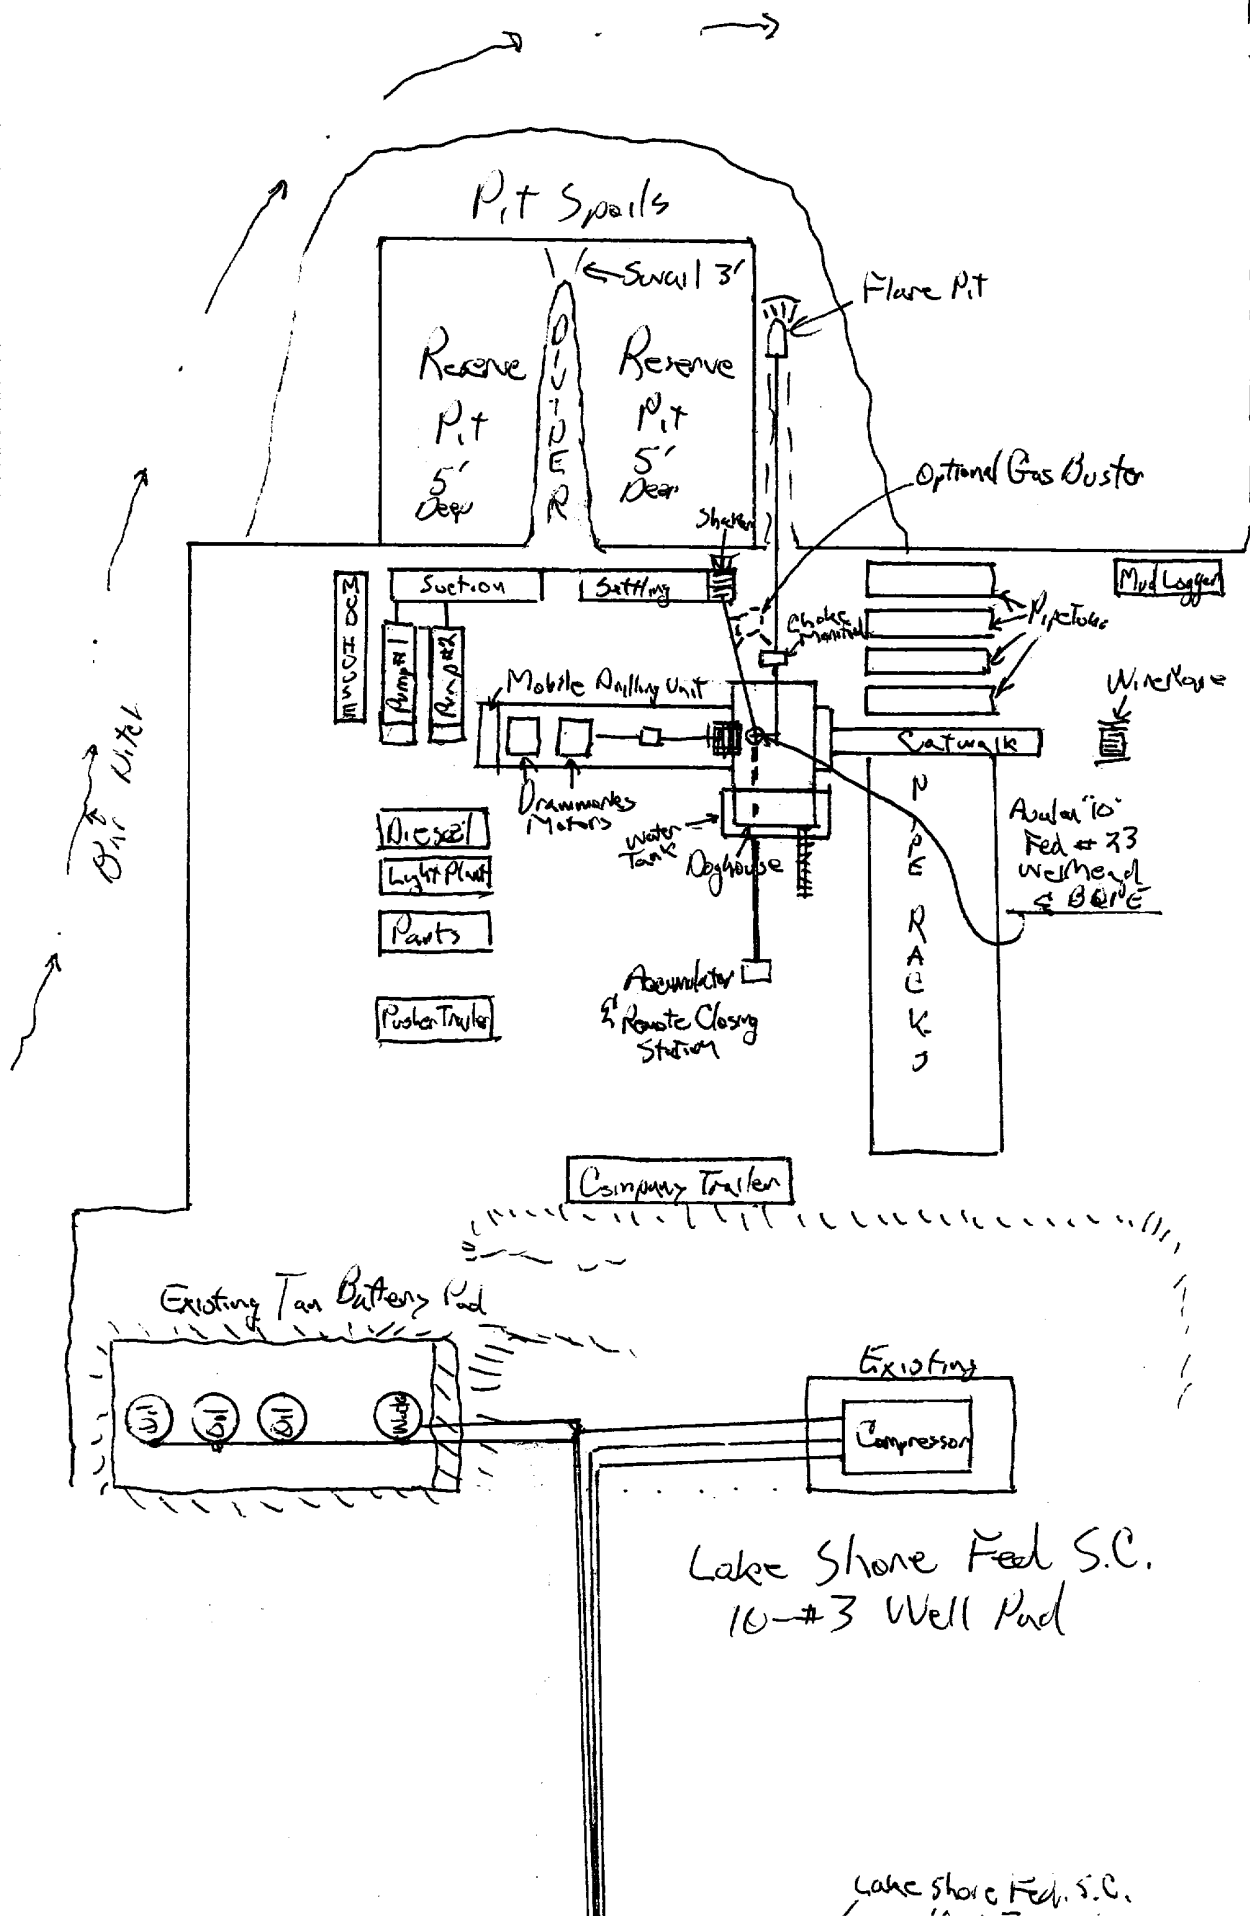 Pit Spoils
Swail 3'
Flare Pit
Reserve
Pit
5'
Deep
DIVIDER
Reserve
Pit
5'
Deep
Optional Gas Buster
Shaker
MUD HOUSE
Suction
Settling
Choke
Manifold
Mud Logger
Pump #1
Pump #2
Mobile Drilling Unit
Pipe Tubs
Wireline
Catwalk
Drawworks
Motors
Water
Tank
Doghouse
PIPE RACKS
Fed # 23
Wellhead
& BOPE
Diesel
Light Plant
Parts
Pusher Trailer
Accumulator
& Remote Closing
Station
Company Trailer
Existing Tan Battery Pad
Oil
Oil
Oil
Water
Existing
Compressor
Lake Shore Fed S.C.
10-#3 Well Pad
Lake Shore Fed. S.C.